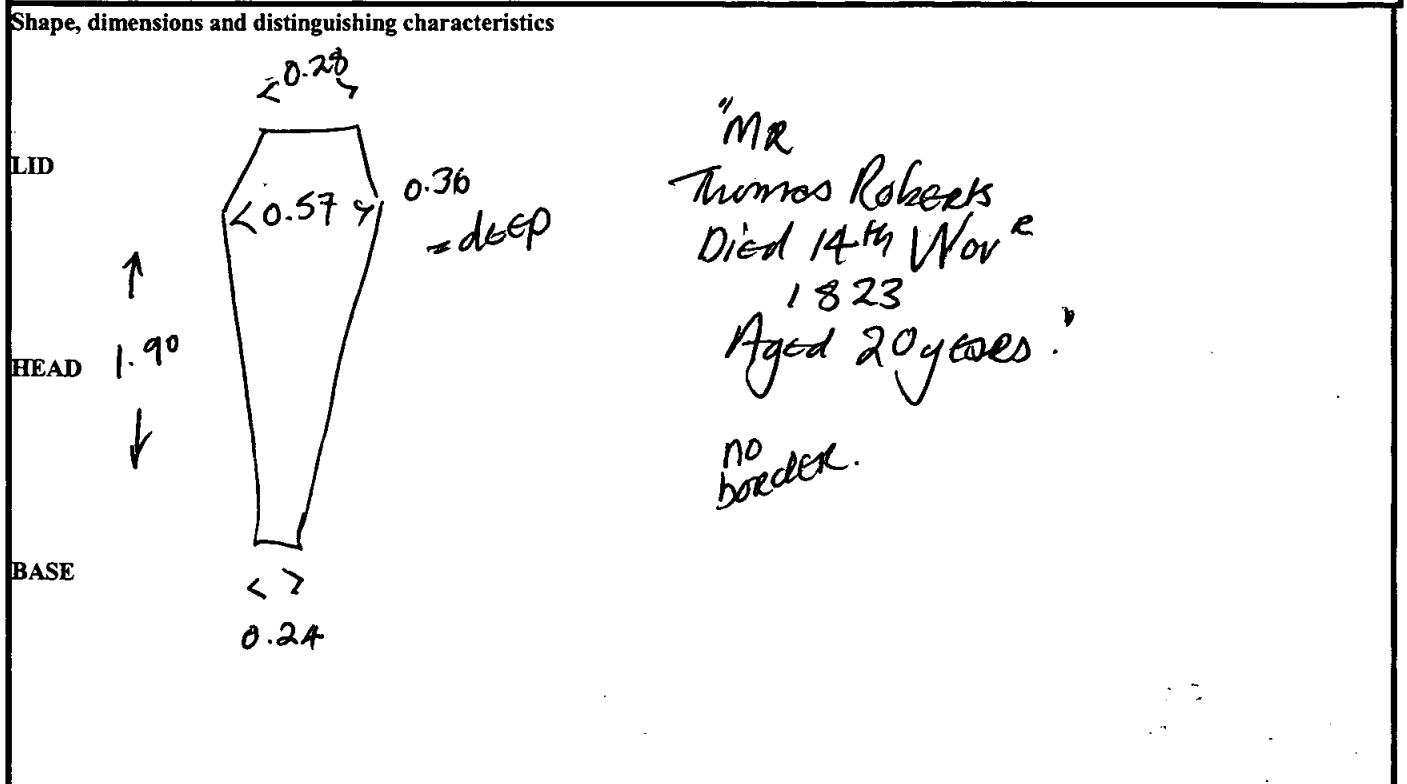 Shape, dimensions and distinguishing characteristics
<0.28>
LID
<0.57>
0.36
= deep
HEAD
1.90
BASE
< >
0.24
"MR
Thomas Roberts
Died 14th Novr
1823
Aged 20 years."
no
border.